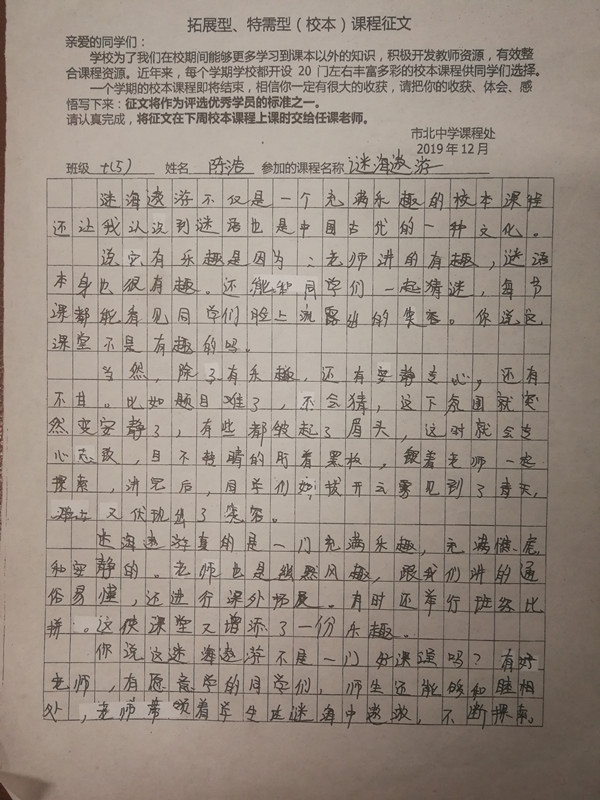 拓展型、特需型（校本）课程征文
亲爱的同学们：
学校为了我们在校期间能够更多学习到课本以外的知识，积极开发教师资源，有效整
合课程资源。近年来，每个学期学校都开设 20 门左右丰富多彩的校本课程供同学们选择。
一个学期的校本课程即将结束，相信你一定有很大的收获，请把你的收获、体会、感
悟写下来：征文将作为评选优秀学员的标准之一。
请认真完成，将征文在下周校本课程上课时交给任课老师。
市北中学课程处
2019 年 12 月
班级 七(5) 姓名 陈浩 参加的课程名称 谜海遨游
谜海遨游不仅是一个充满乐趣的校本课程
还让我认识到谜语也是中国古代的一种文化。
说它有乐趣是因为：老师讲的有趣，谜语
本身也很有趣。还能和同学们一起猜谜，每节
课都能看见同学们脸上流露出的笑容。你说这
课堂不是有趣的吗。
当然，除了有乐趣，还有安静专心，还有
不甘。比如题目难了，不会猜，这下氛围就突
然变安静了，有些都皱起了眉头，这时就会专
心志致，目不转睛的盯着黑板，跟着老师一起
探索，讲完后，同学们如拨开云雾见到了青天，
又伏现出了笑容。
迷海遨游真的是一门充满乐趣，充满
和安静的。老师也是幽默风趣，跟我们讲的通
俗易懂，还进行课外拓展。有时还举行班级比
拼。这使课堂又增添了一份乐趣。
你说这迷海遨游不是一门好课程吗？有好
老师，有愿意学的同学们，师生还能够和睦相
处，老师带领着学生在谜海中遨游，不断探索。